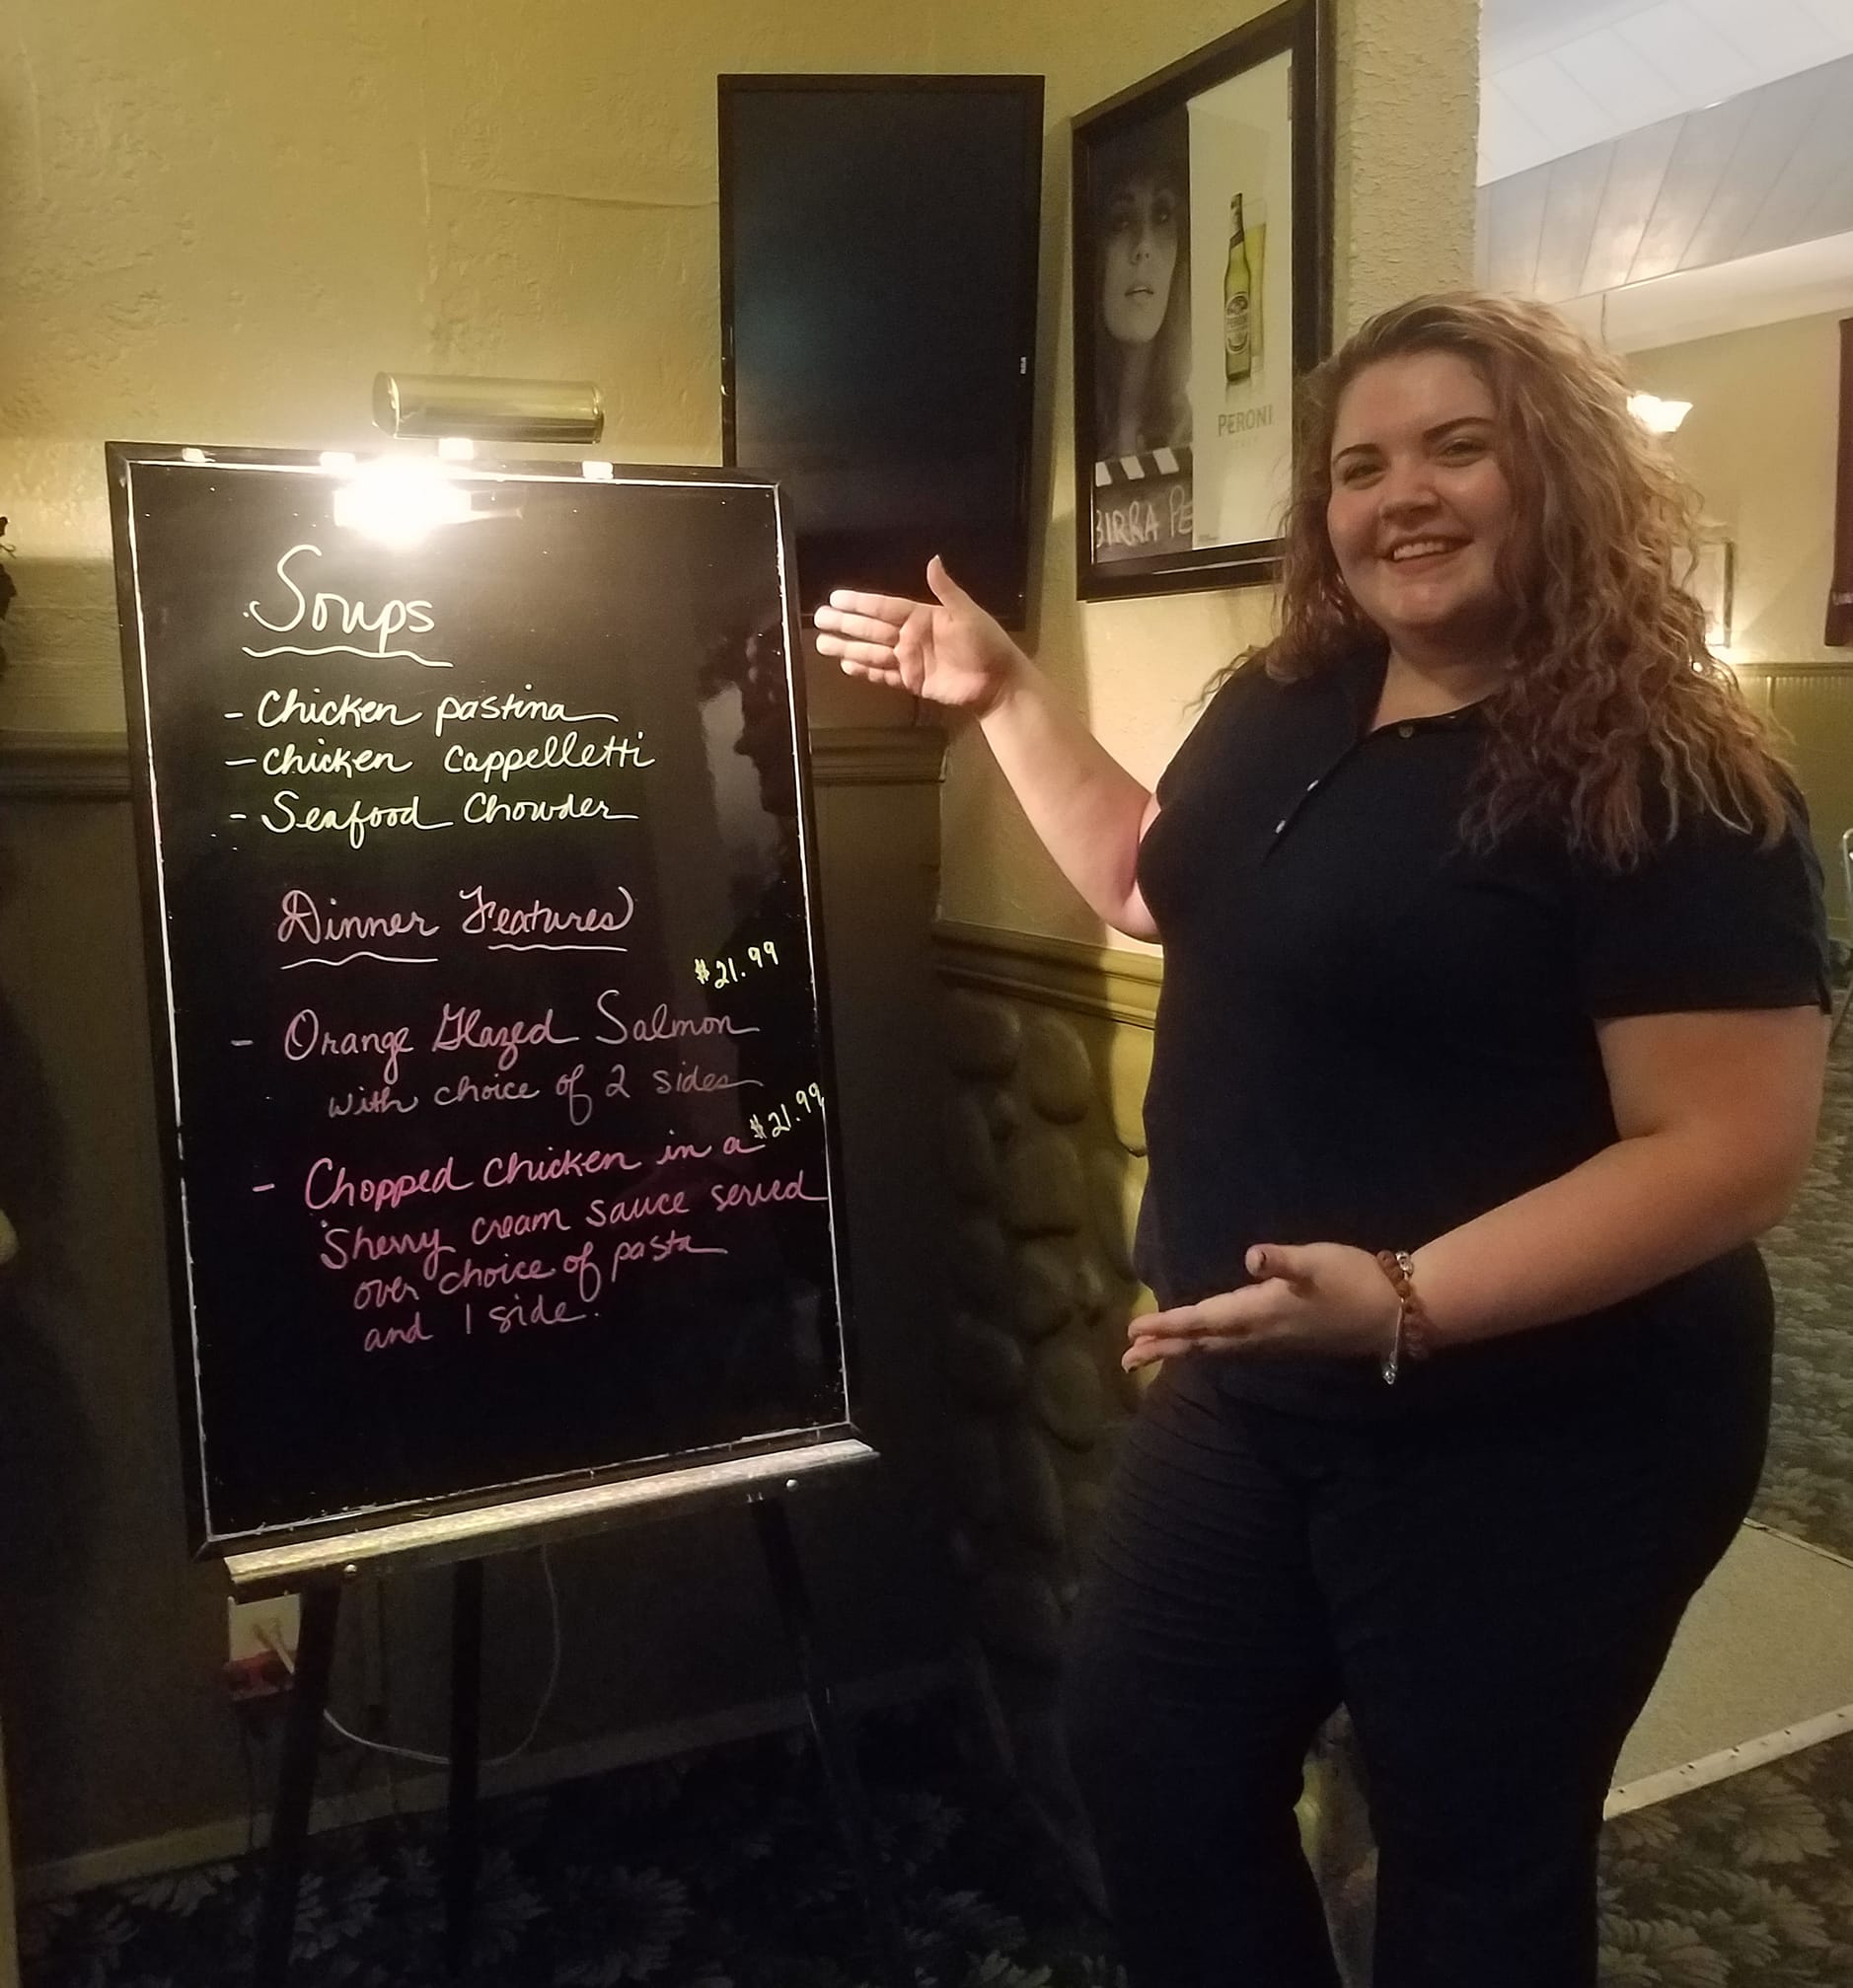 Soups
- Chicken pastina
- chicken cappelletti
- Seafood Chowder
Dinner Features
$21.99
- Orange Glazed Salmon
with choice of 2 sides
$21.99
- Chopped chicken in a
Sherry cream sauce served
over choice of pasta
and 1 side.
PERONI
BIRRA PE